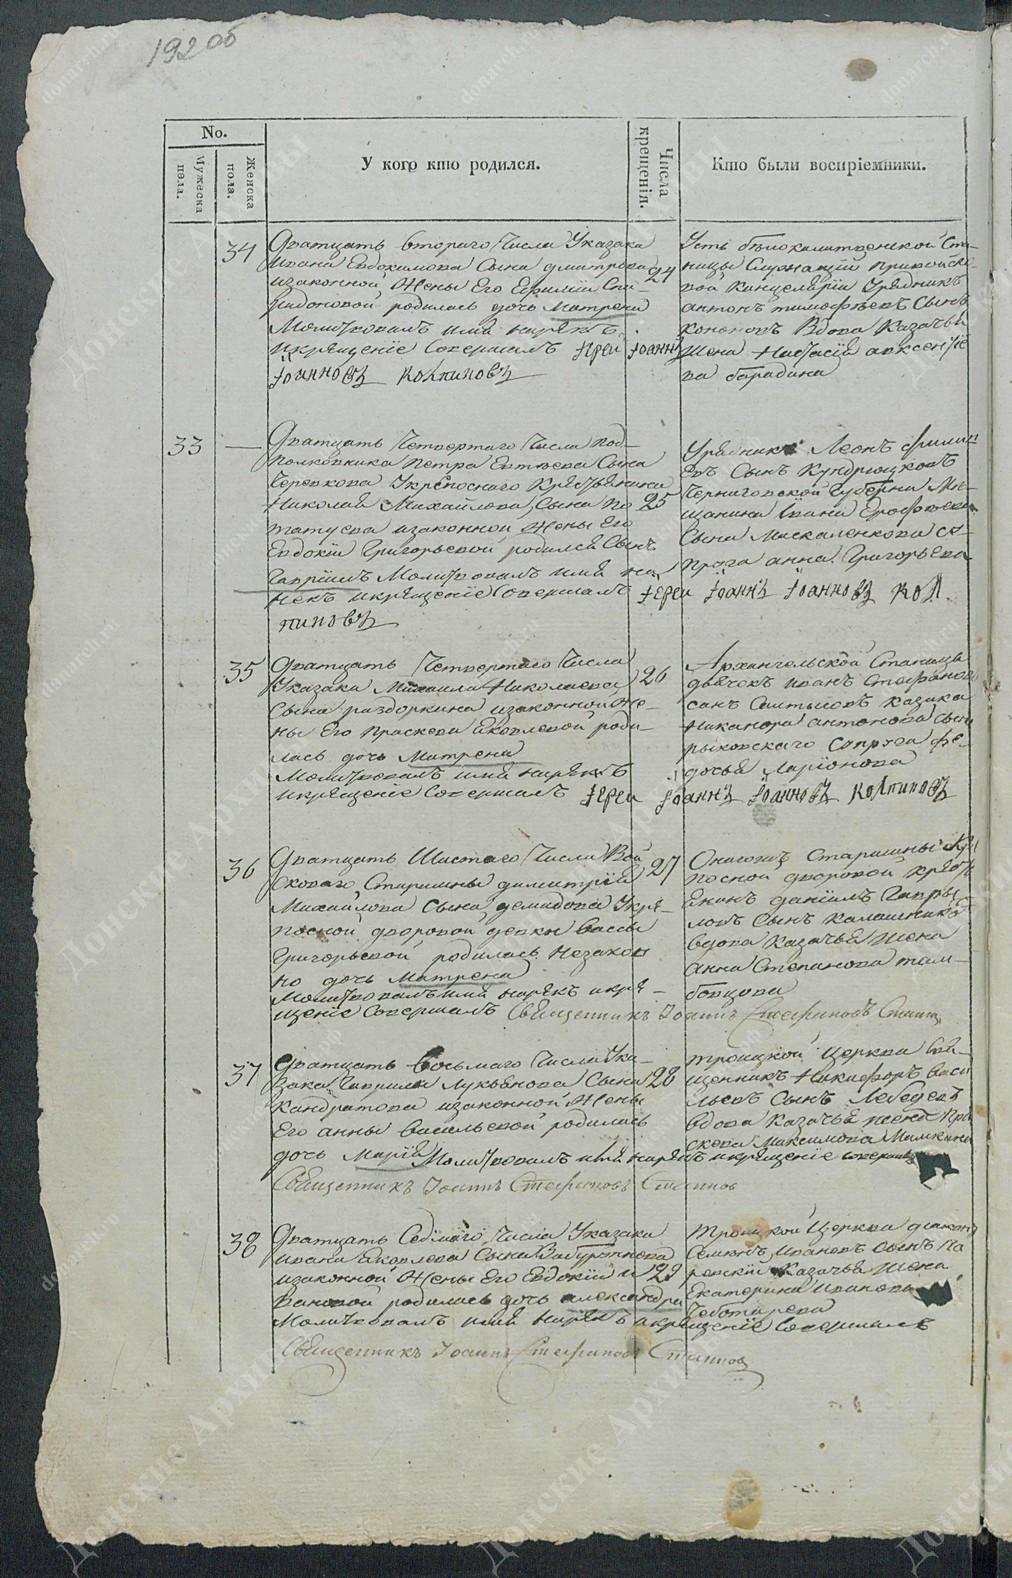 192 об
No.
Мужеска пола.
Женска пола.
У кого кто родился.
Числа крещенія.
Кто были воспріемники.
34
Дватцать втораго Числа Указака
Ивана Евдокимова Сына Дмитрева
изаконной Жены Его Ефимии Спи-
ридоновой родилась дочь Матрена
Молитвовалъ имя нарекъ
икрещеніе Совершалъ Іерей Іоаннъ
Іоанновъ Колпиновъ
24
Усть бѣлокалитвенской Ста-
ницы Служащій привойско-
вой Канцеляріи Урядникъ
антонъ тимофѣевъ Сынъ
Кононовъ Вдова Казачья
Жена Настасія авксентіе
ва
33
Дватцать Четвертаго Числа под-
полковника Петра Евтѣева Сына
Черевкова Укрепоснаго Крестьянина
Николая Михайлова Сына По
татуева изаконной Жены Его
Евдокіи Григорьевой родился Сынъ
Гавріилъ Молитвовалъ имя на
рекъ икрещеніе Совершалъ Іереи Іоаннъ Іоанновъ Кол
пиновъ
25
Урядникъ Леонъ филип
въ Сынъ Кундрюцковъ
Черниговской Губерніи Ме-
щанина Ивана Ерофѣева
Сына Маскаленкова су-
пруга анна Григорьева
35
Дватцать Четвертаго Числа
Указака Михаила Николаева
Сына раздоркина изаконной Же-
ны Его Прасковьи Яковлевой роди-
лась дочь Матрена
Молитвовалъ имя нарекъ
икрещеніе Совершалъ Іереи Іоаннъ Іоанновъ Колпиновъ
26
Архангельской Станицы
дьячокъ иванъ Стефанов
сынъ Казака
Никанора антонова Сына
рыковскаго Супруга фе-
досья Ларіонова
36
Дватцать Шестаго Числа Вой
сковаго Старшины димитрія
Михайлова Сына демидова Укре-
посной дворовой девки Вассы
Григорьевой родилась Незакон
но дочь Матрена
Молитвовалъ имя нарекъ икре-
щеніе Совершалъ Священникъ Іоаннъ Стефановъ
27
Онагожъ Старшины Кре
постной дворовой крестья
нинъ даніилъ Гаври
ловъ Сынъ Калашниковъ
вдова Казачья Жена
анна Степанова там-
бовцова
37
Дватцать восьмаго Числа Ука-
зака Гаврилы Лукьянова Сына
Кандратова изаконной Жены
Его анны васильевой родилась
дочь Марія Молитвовалъ имя нарекъ икрещеніе совершалъ
Священникъ Іоаннъ Стефановъ
28
троицкой Церкви Свя-
щенникъ Никифоръ Васи
льевъ Сынъ Лебедевъ
вдова Казачья жена Пра
сковья Максимова
38
Дватцать Седмаго Числа Указака
ивана Яковлева Сына
изаконной Жены Его Евдокіи и
вановой родилась дочь александра
Молитвовалъ имя нарекъ икрещеніе Совершалъ
Священникъ Іоаннъ Стефановъ
29
троицкой Церкви дьякон
Семенъ ивановъ Сынъ Па
ревскій Казачья Жена
Екатерина иванова
Чеботарева